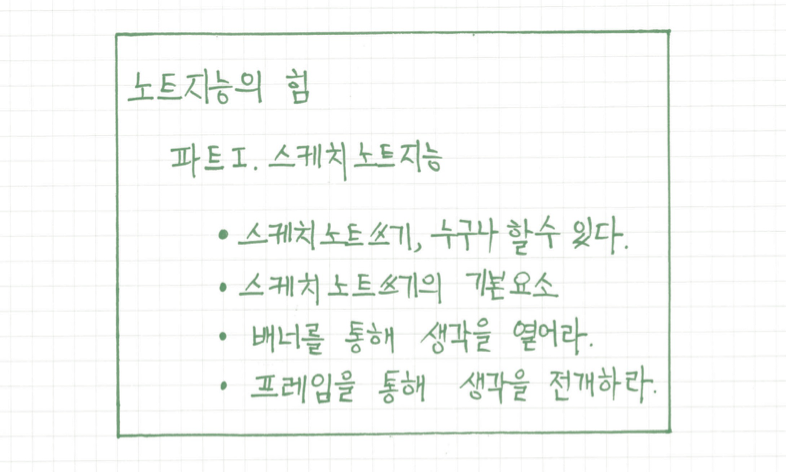 노트지능의 힘
파트I. 스케치노트지능
• 스케치노트쓰기, 누구나 할수 있다.
• 스케치노트쓰기의 기본요소
• 배너를 통해 생각을 열어라.
• 프레임을 통해 생각을 전개하라.